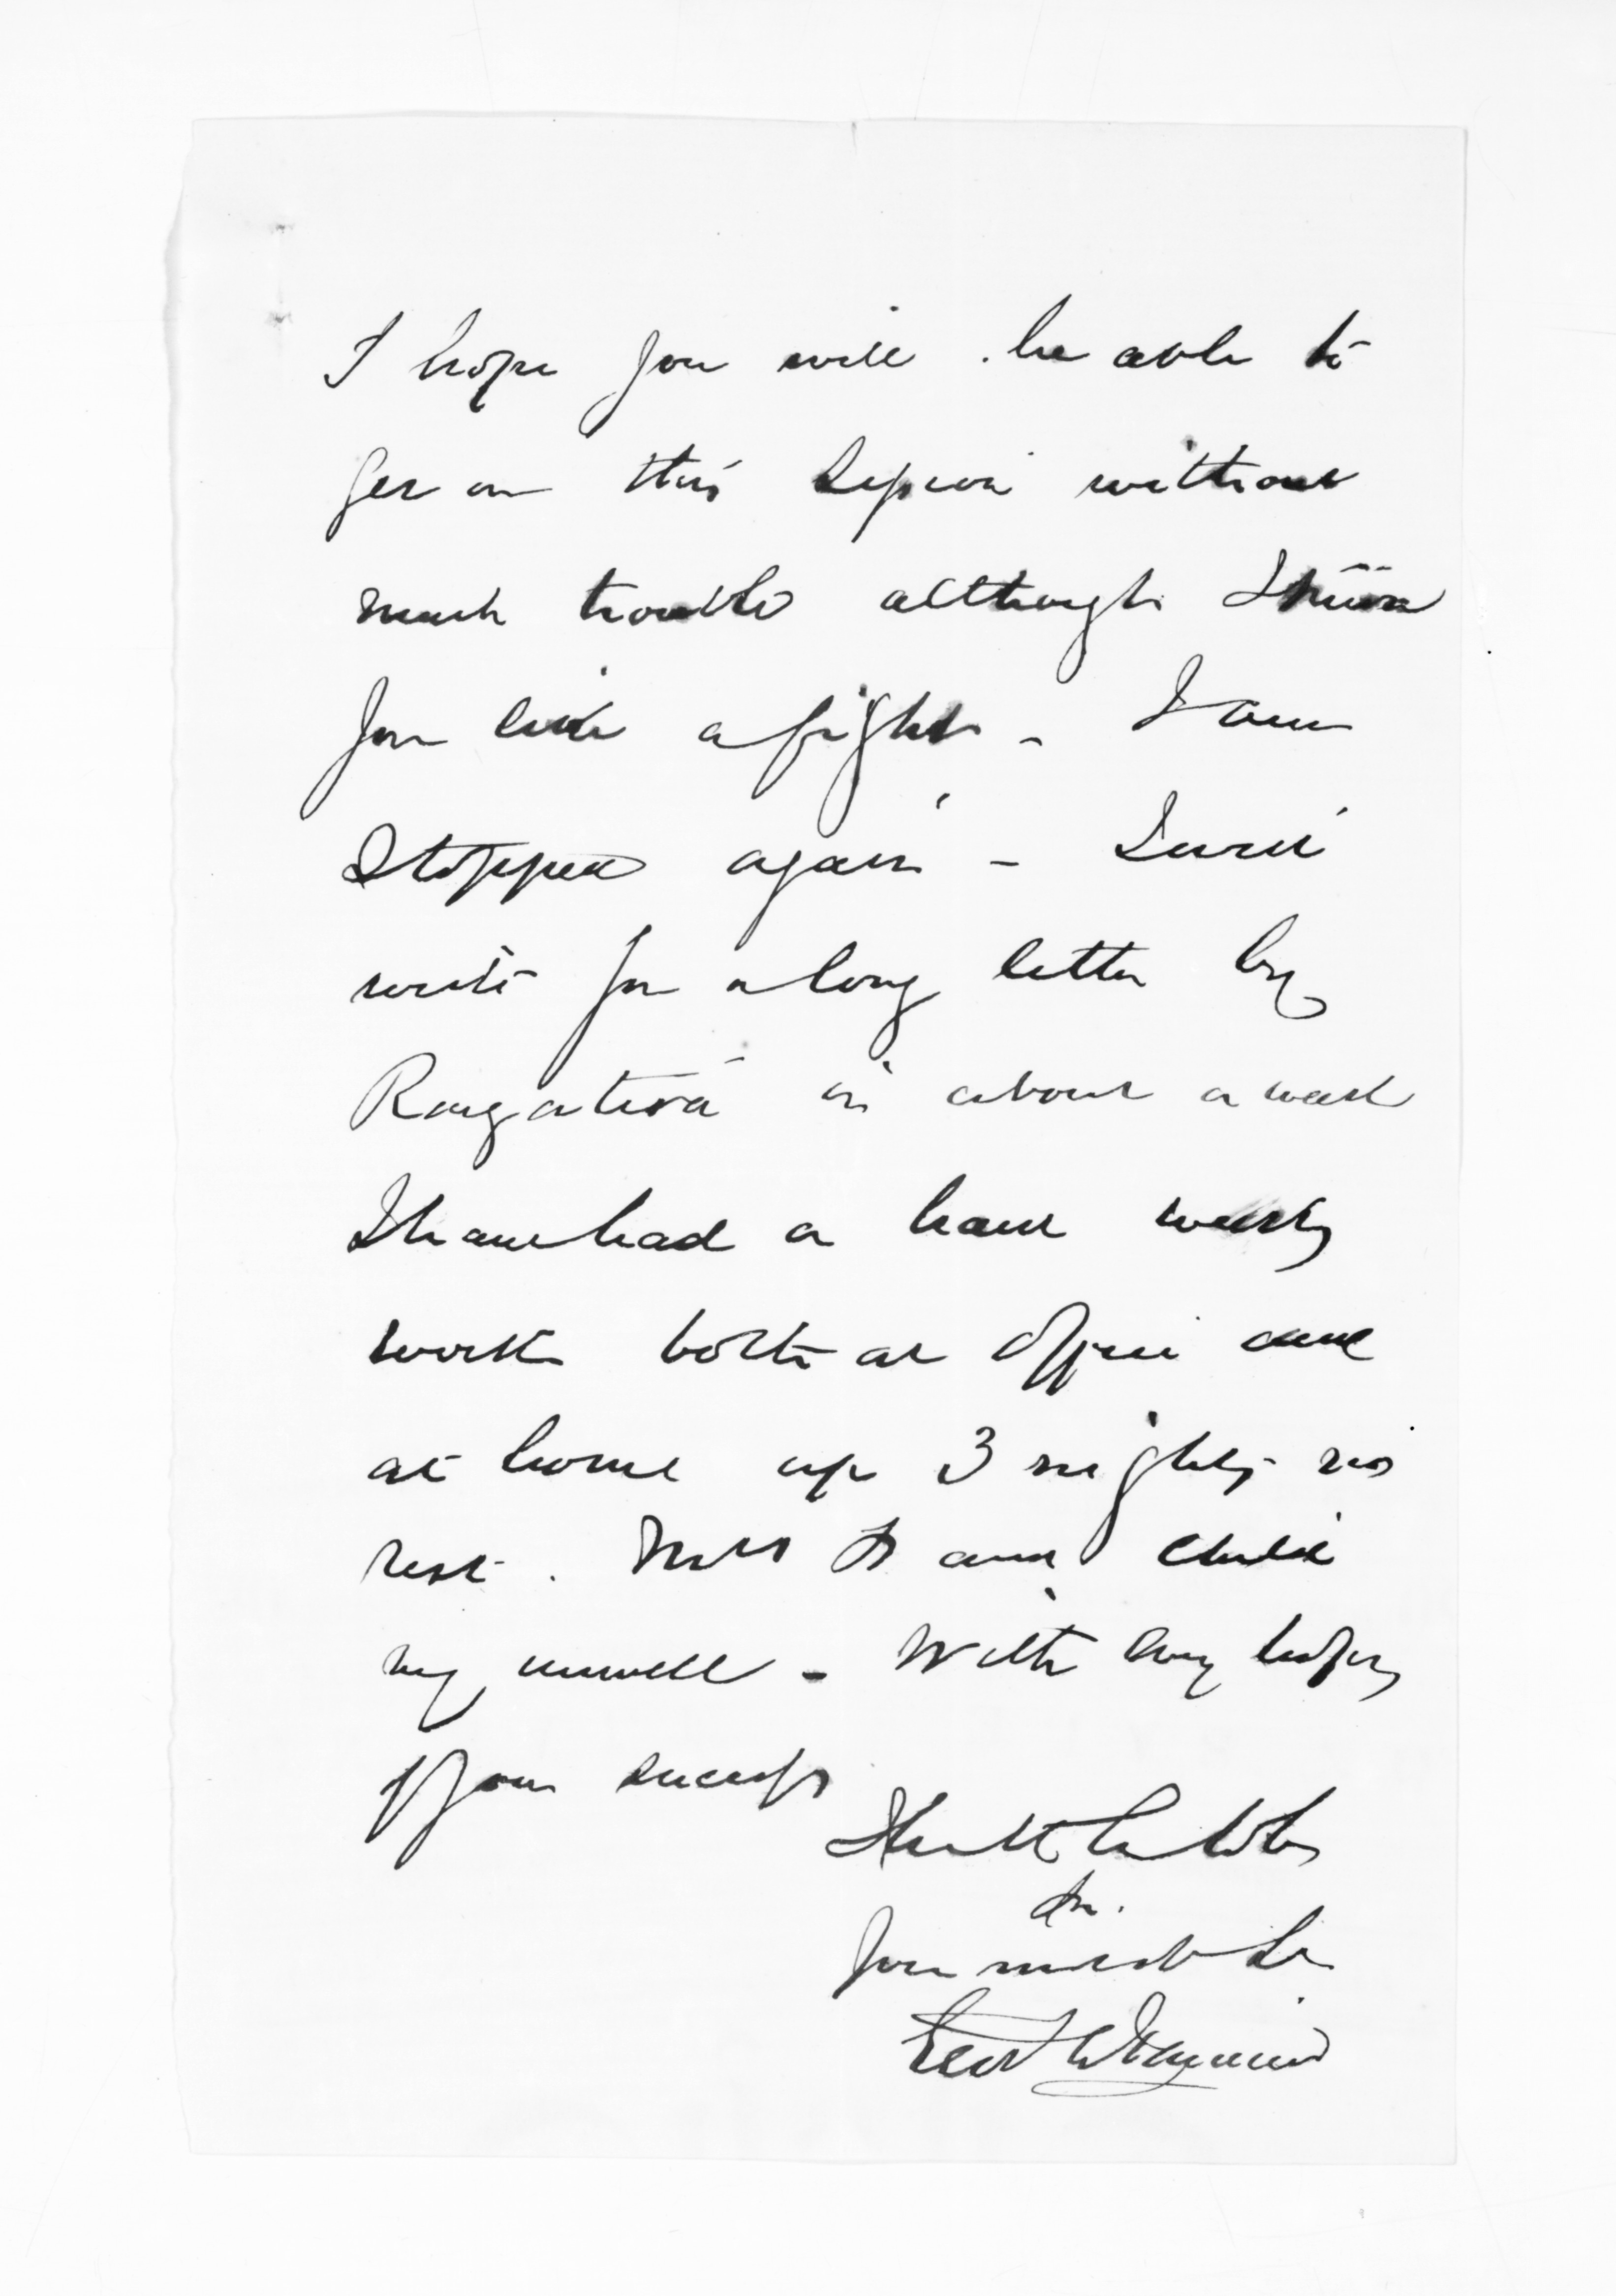 I hope you will be able to
get on this Session without
much trouble although I think
you like a fight - I am
Stopped again - I will
write you a long letter by
Rangatira in about a week
I have had a hard weeks
work both at Office and
at home up 3 nights no
rest. Mrs and child
very unwell - With every hope
of your success
I have
Sir
Your most